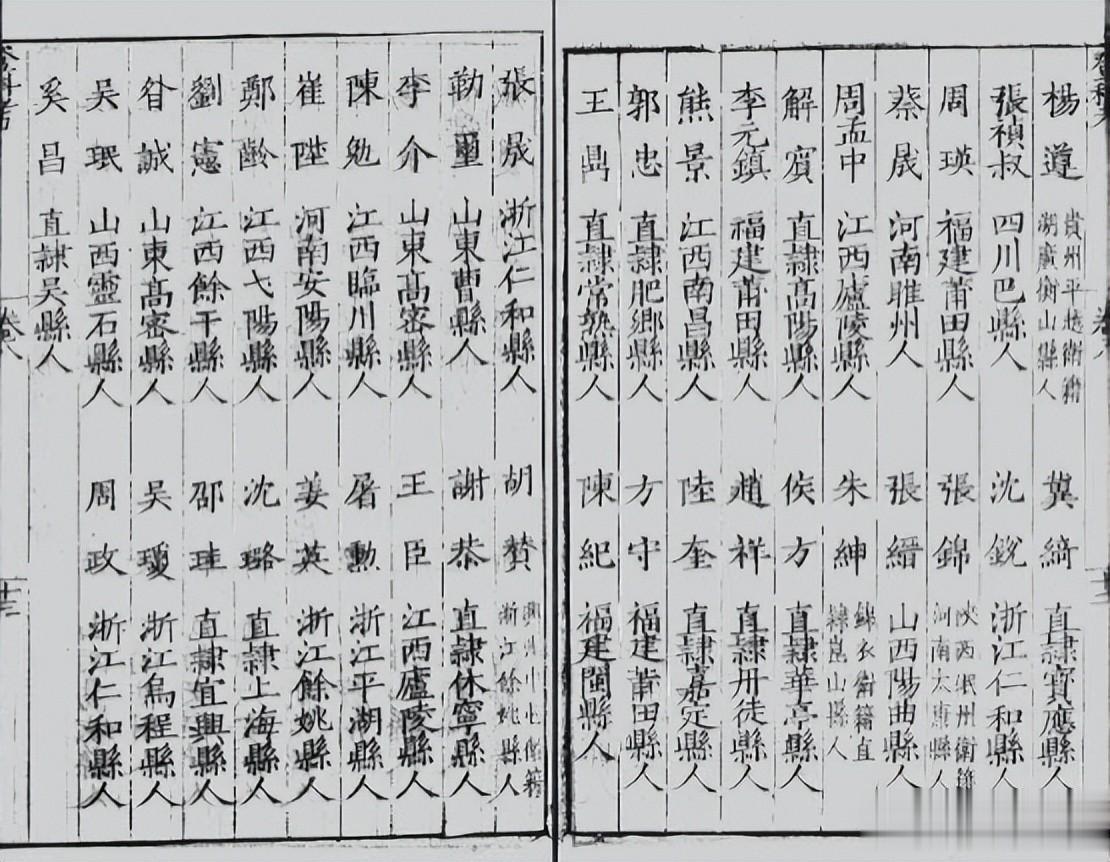 楊遵 貴州平越衛籍湖廣衡山縣人
冀綺 直隷寳應縣人
張禎叔 四川巴縣人
沈銳 浙江仁和縣人
周瑛 福建莆田縣人
張錦 陜西岷州衛籍河南太康縣人
蔡晟 河南睢州人
張縉 山西陽曲縣人
周孟中 江西廬陵縣人
朱紳 錦衣衛籍直隷崑山縣人
解賔 直隷高陽縣人
侯方 直隷華亭縣人
李元鎮 福建莆田縣人
趙祥 直隷丹徒縣人
熊景 江西南昌縣人
陸奎 直隷嘉定縣人
郭忠 直隷肥鄉縣人
方守 福建莆田縣人
王鼎 直隷常熟縣人
陳紀 福建閩縣人
張晟 浙江仁和縣人
胡贊 浙江餘姚縣人
勒璽 山東曹縣人
謝恭 直隷休寧縣人
李介 山東高密縣人
王臣 江西廬陵縣人
陳勉 江西臨川縣人
屠勲 浙江平湖縣人
崔陞 河南安陽縣人
姜英 浙江餘姚縣人
鄭齡 江西弋陽縣人
沈璐 直隷上海縣人
劉憲 江西餘干縣人
邵珪 直隷宜興縣人
昝誠 山東高密縣人
吳瓊 浙江烏程縣人
吳珉 山西靈石縣人
周政 浙江仁和縣人
奚昌 直隷吳縣人
卷八
十三